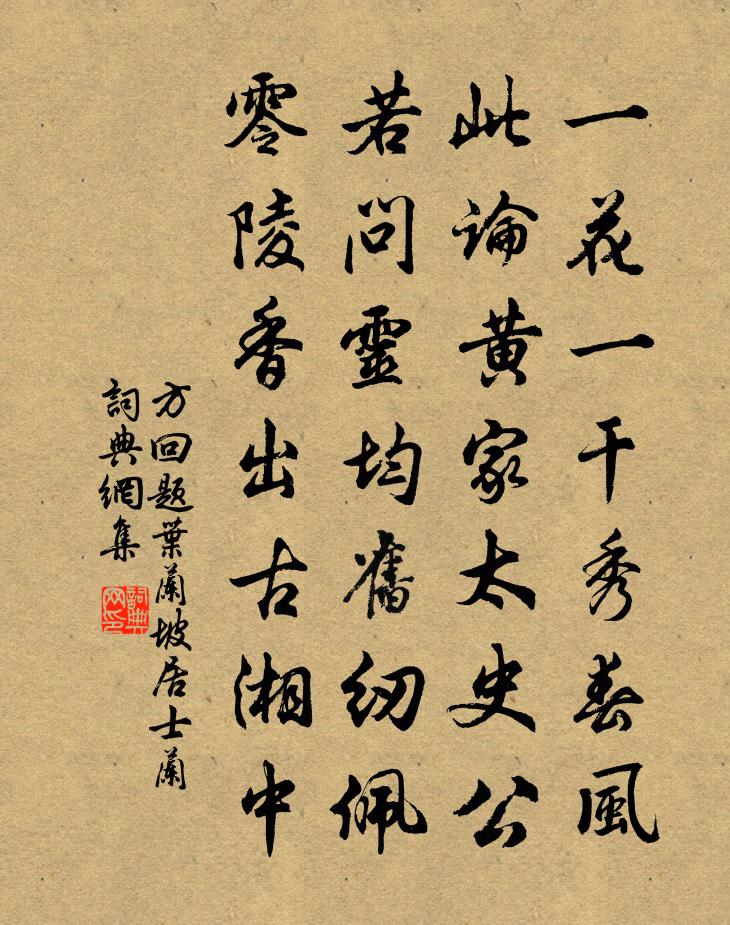 一花一干秀春風
此論黄家太史公
若問靈均舊紉佩
零陵香出古湘中
方回题葉蘭坡居士蘭
詞典網集
詞典网印